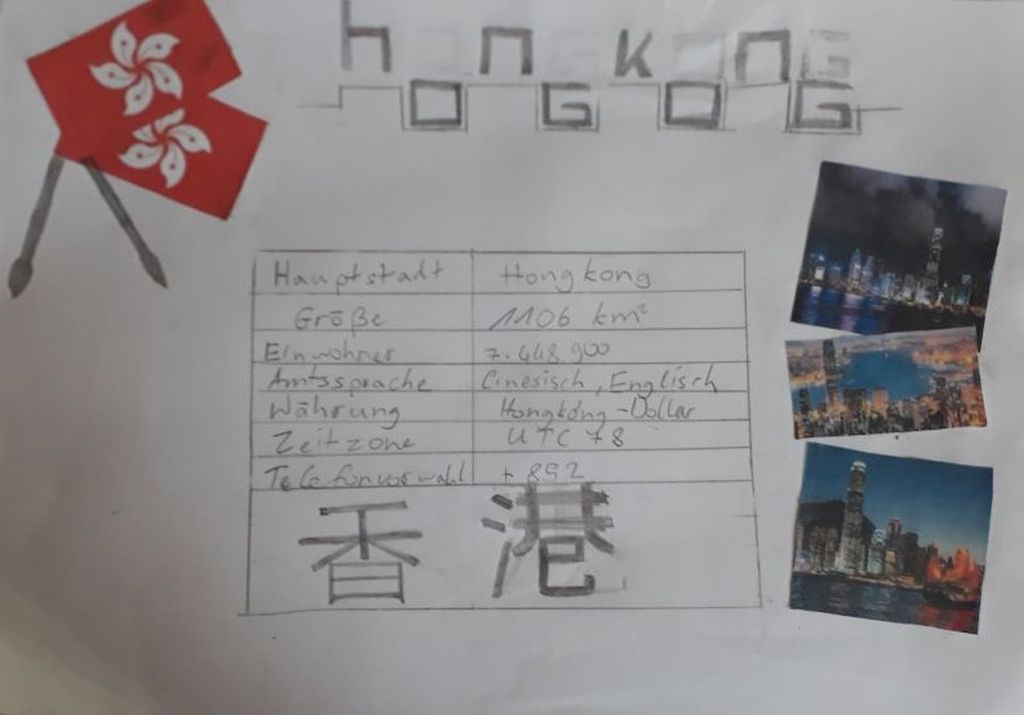 hOnGkOnG
Hauptstadt Hongkong
Größe 1106 km²
Einwohner 7.448.900
Amtssprache Cinesisch, Englisch
Währung Hongkong-Dollar
Zeitzone UTC +8
Telefonvorwahl + 852
香港